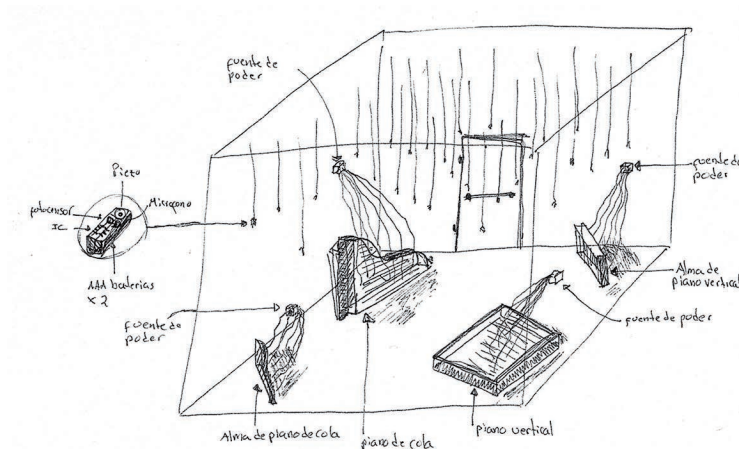 fuente de
poder
Piezo
fotosensor
Micrófono
IC
AAA baterias
x 2
fuente de
poder
Alma de
piano vertical
fuente de
poder
fuente de poder
Alma de piano de cola
piano de cola
piano vertical